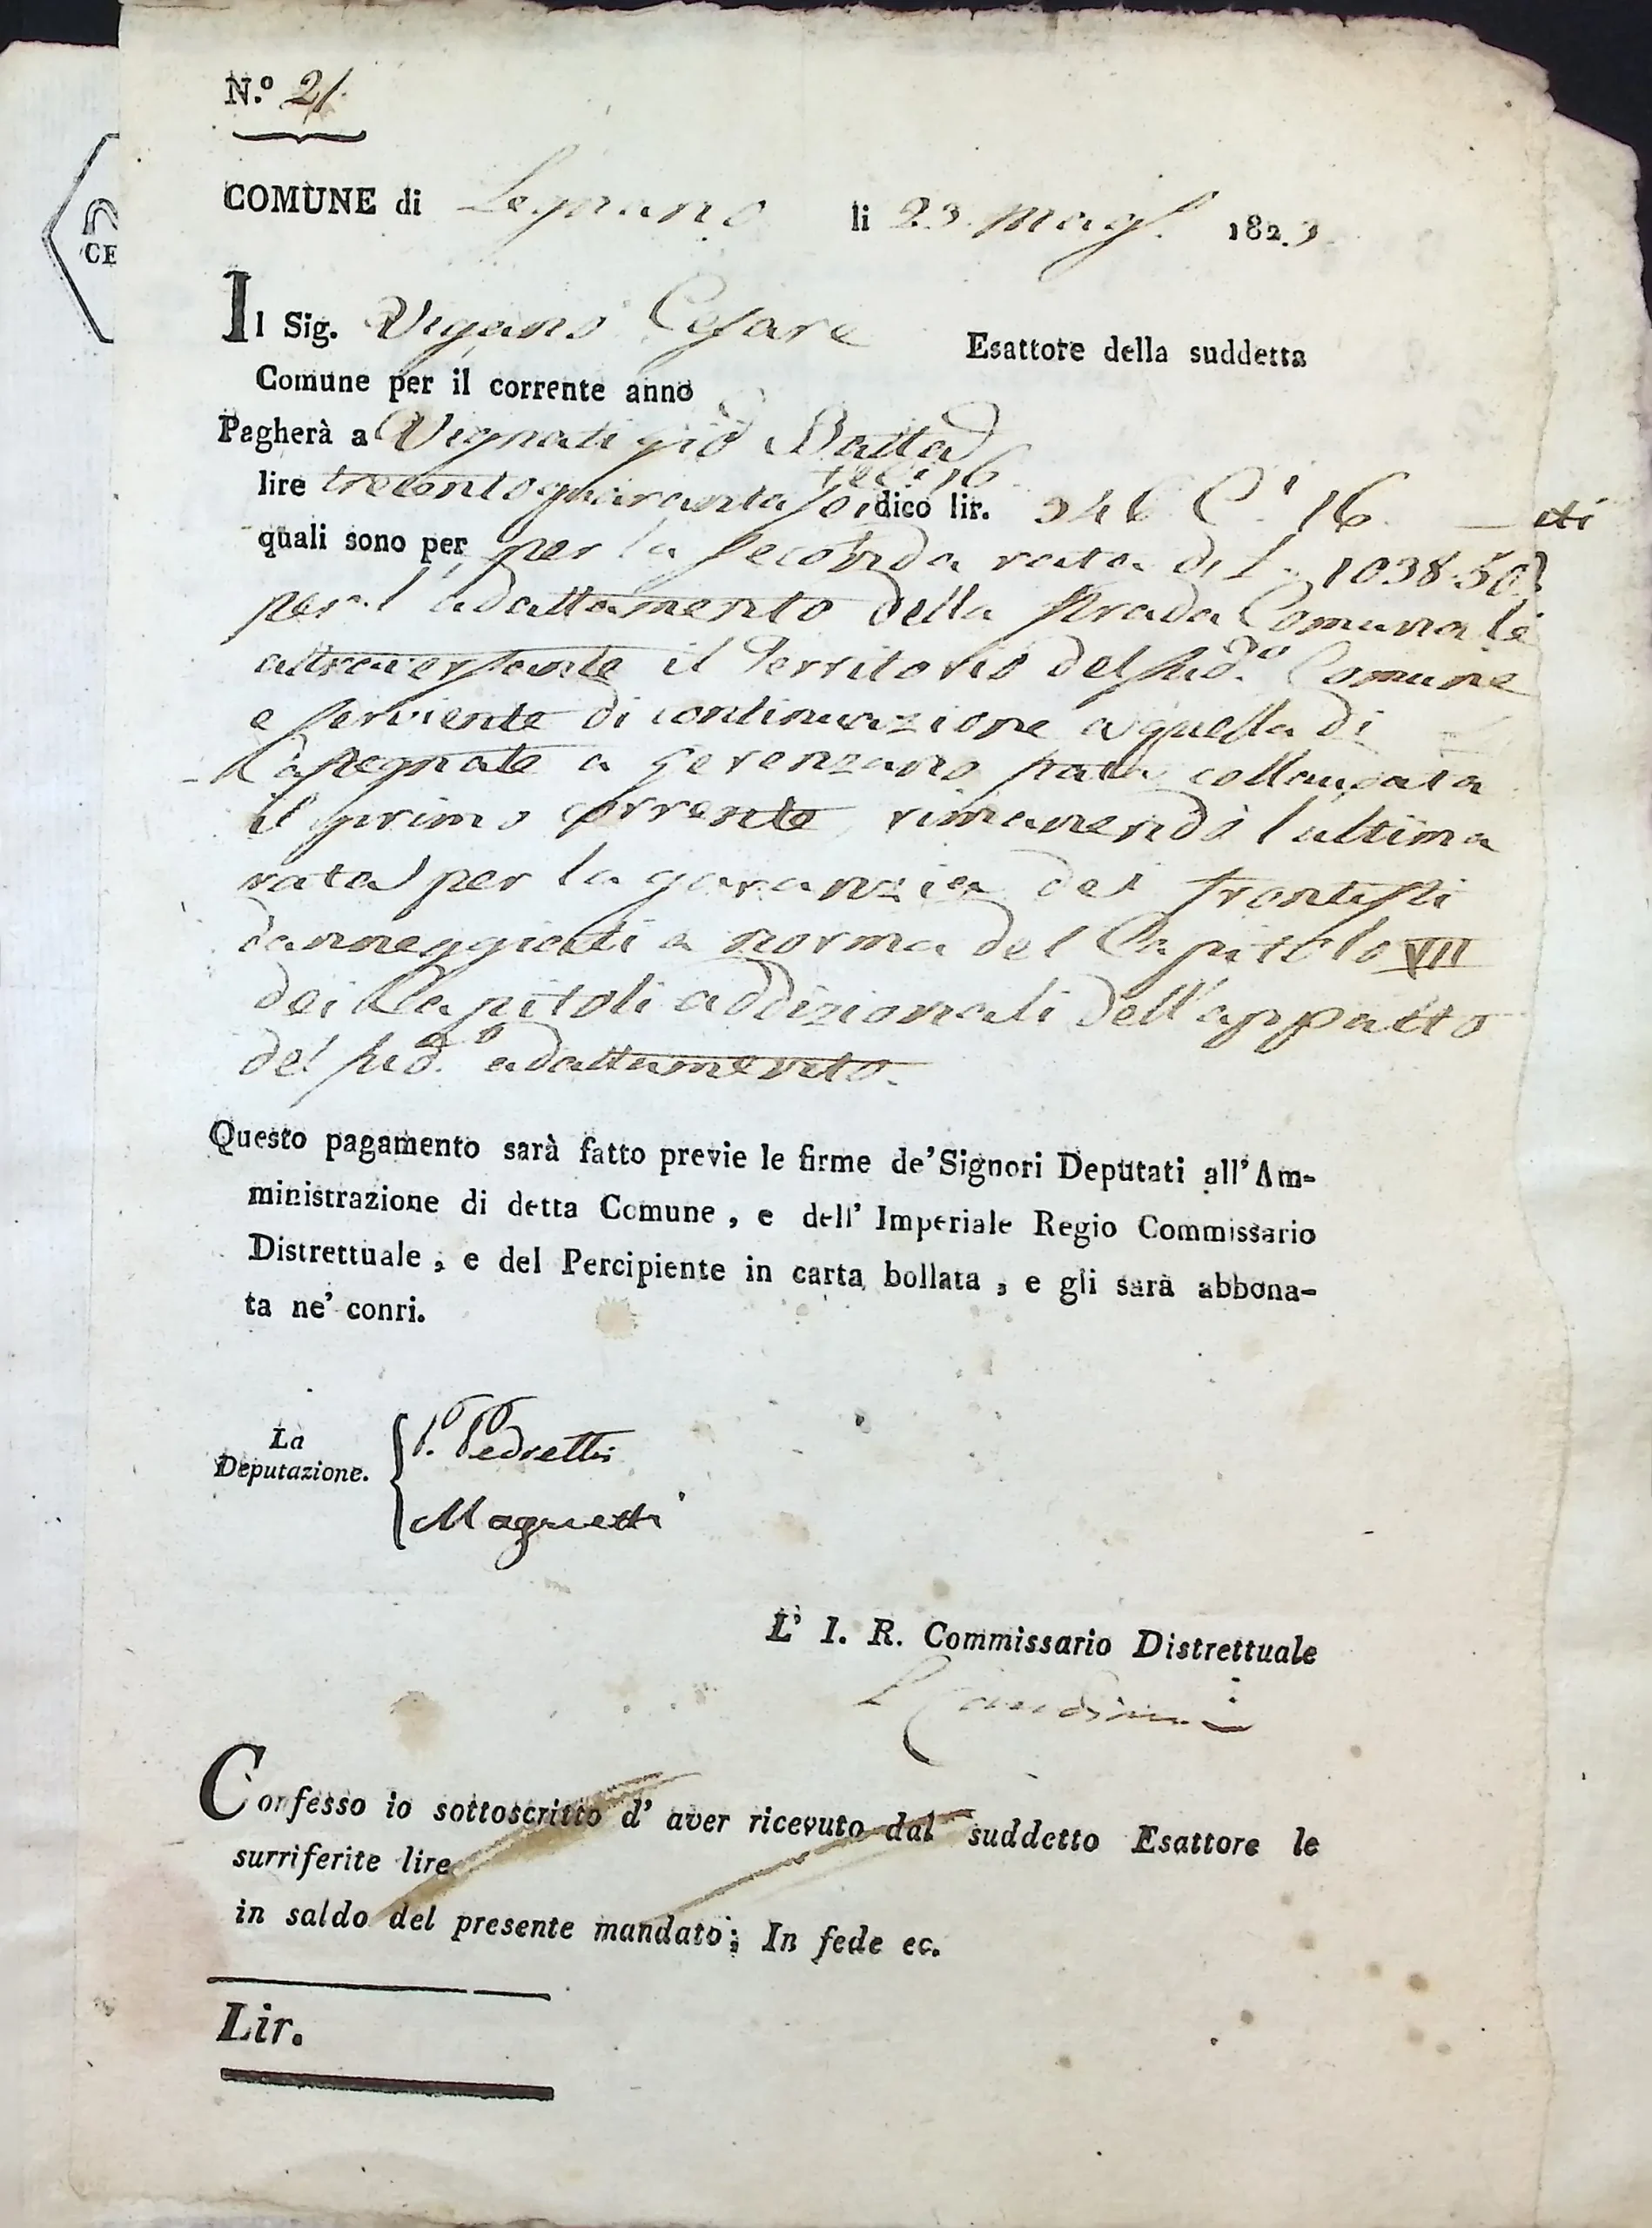 N.º 21
COMUNE di Legnano li 23 Magº. 1823.
CE
Il Sig. Viganò Cesare Esattore della suddetta
Comune per il corrente anno
Pagherà a Vignati Giò Batta
lire trecentoquaranta dico lir. 346 C.i 16
quali sono per per la seconda rata di L. 1038.50
per l'adattamento della strada Comunale
attraversante il Territorio del sud.º Comune
e serviente di continuazione a quella di
Castegnate a Gerenzano stata collaudata
il primo corrente, rimanendo l'ultima
rata per la garanzia dei frontisti
danneggiati a norma del Capitolo VII
dei Capitoli addizionali dell'appalto
del sud.º adattamento.
Questo pagamento sarà fatto previe le firme de' Signori Deputati all'Am-
ministrazione di detta Comune, e dell' Imperiale Regio Commissario
Distrettuale, e del Percipiente in carta bollata, e gli sarà abbona-
ta ne' conri.
La
Deputazione.
P. Pedretti
Magnetti
L' I. R. Commissario Distrettuale
Confesso io sottoscritto d' aver ricevuto dal suddetto Esattore le
surriferite lire
in saldo del presente mandato; In fede ec.
Lir.